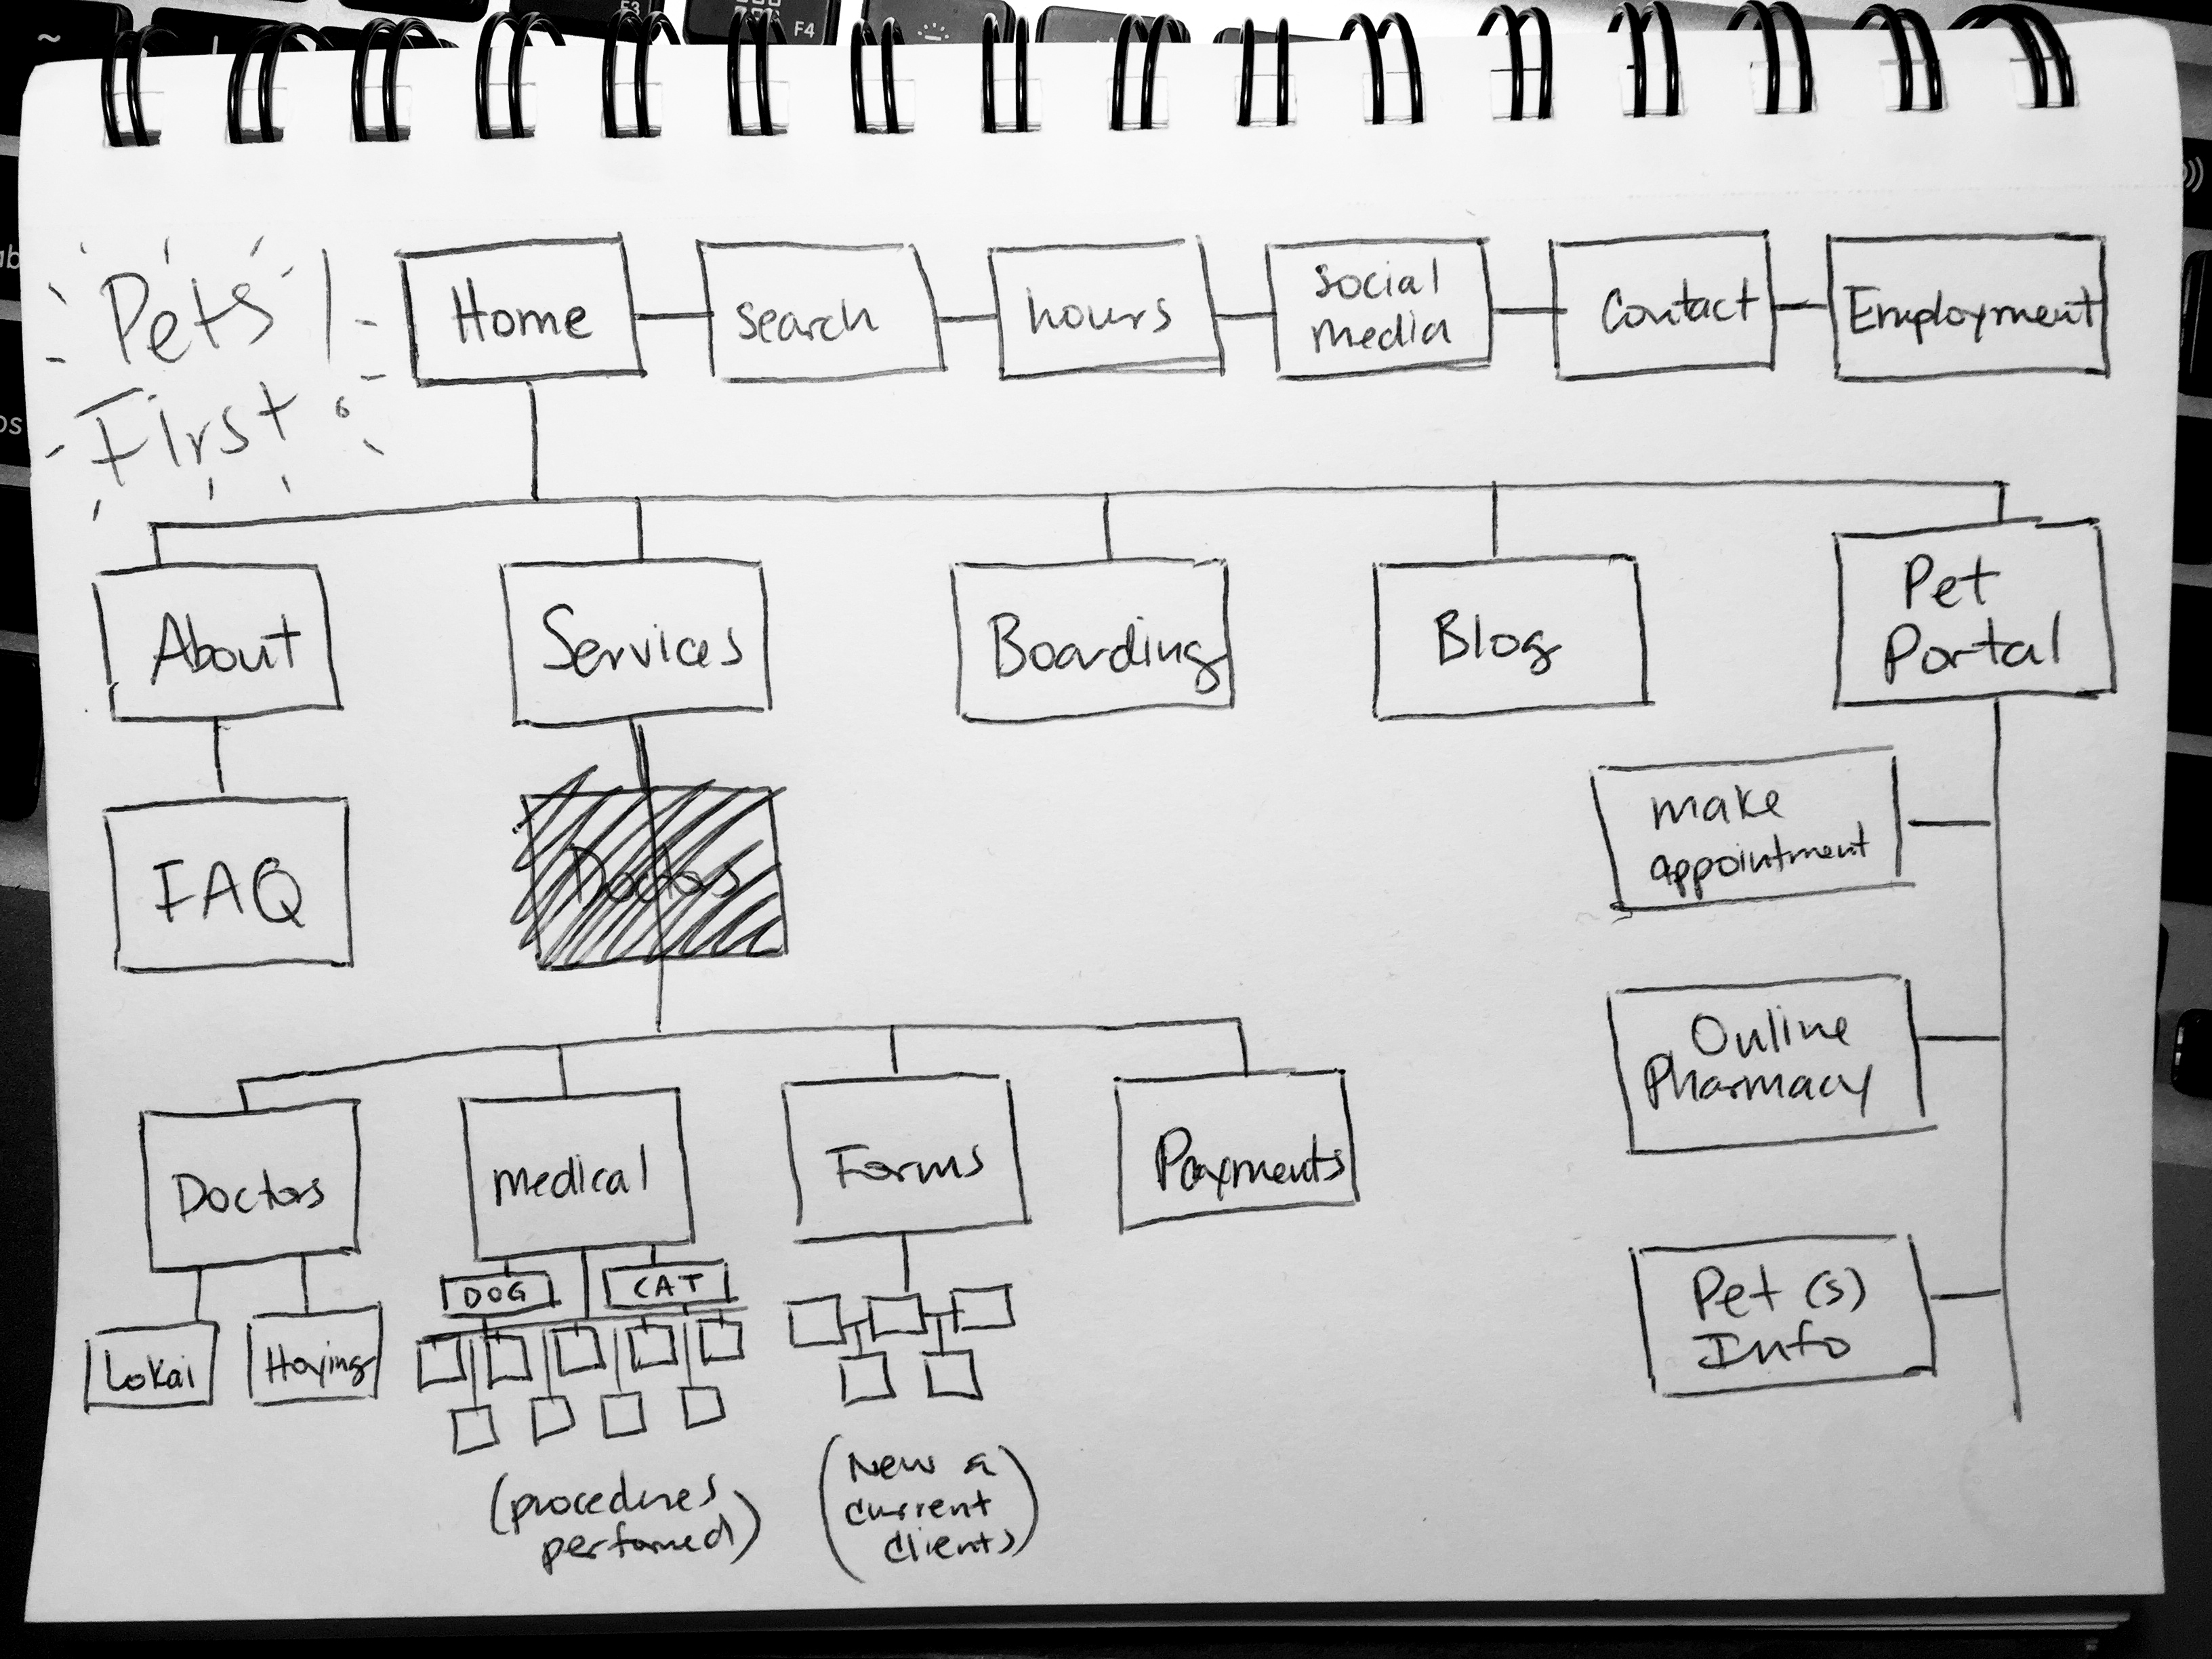 F3
F4
~
Pets!
First
Home
search
hours
social
media
Contact
Employment
About
Services
Boarding
Blog
Pet
Portal
FAQ
Doctors
make
appointment
Online
Pharmacy
Pet (s)
Info
Doctors
medical
Forms
Payments
DOG
CAT
Lokai
Hoying
(procedures
performed)
(New &
current
clients)